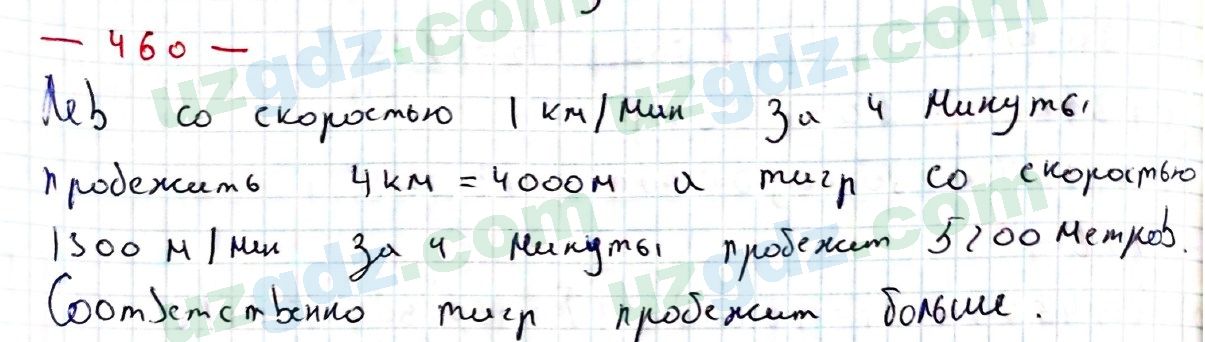 — 460 —
Лев со скоростью 1 км/мин за 4 минуты
пробежить 4км = 4000м а тигр со скоростью
1300 м/мин за 4 минуты пробежит 5200 метров.
Соответственно тигр пробежит больше.
uzgdz.com